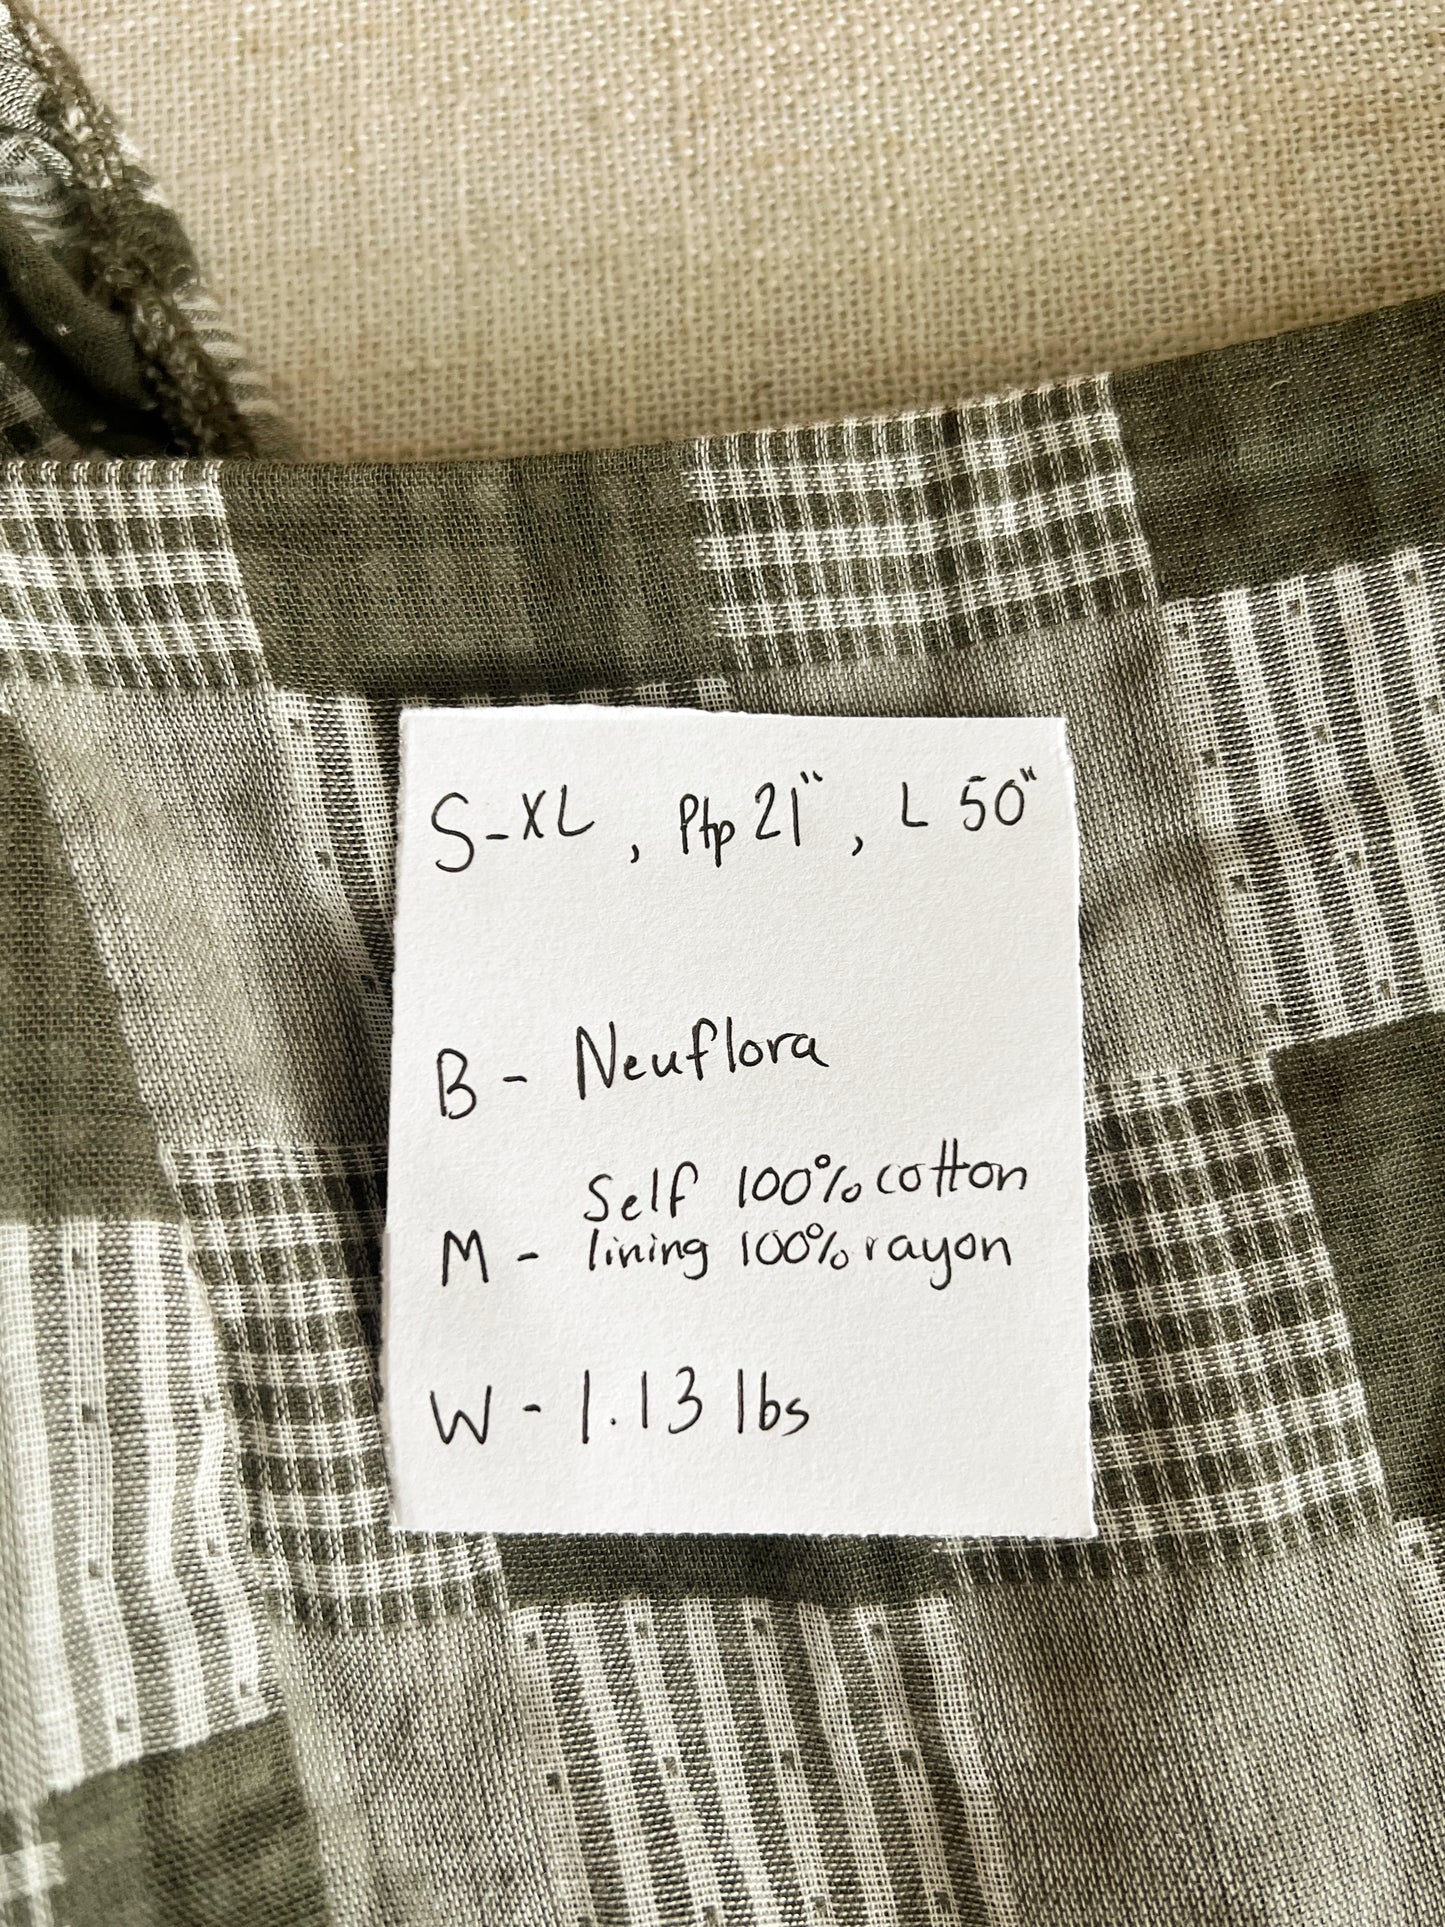 S-XL, Ptp 21", L 50"
B - Neuflora
Self 100% cotton
M - lining 100% rayon
W - 1.13 lbs